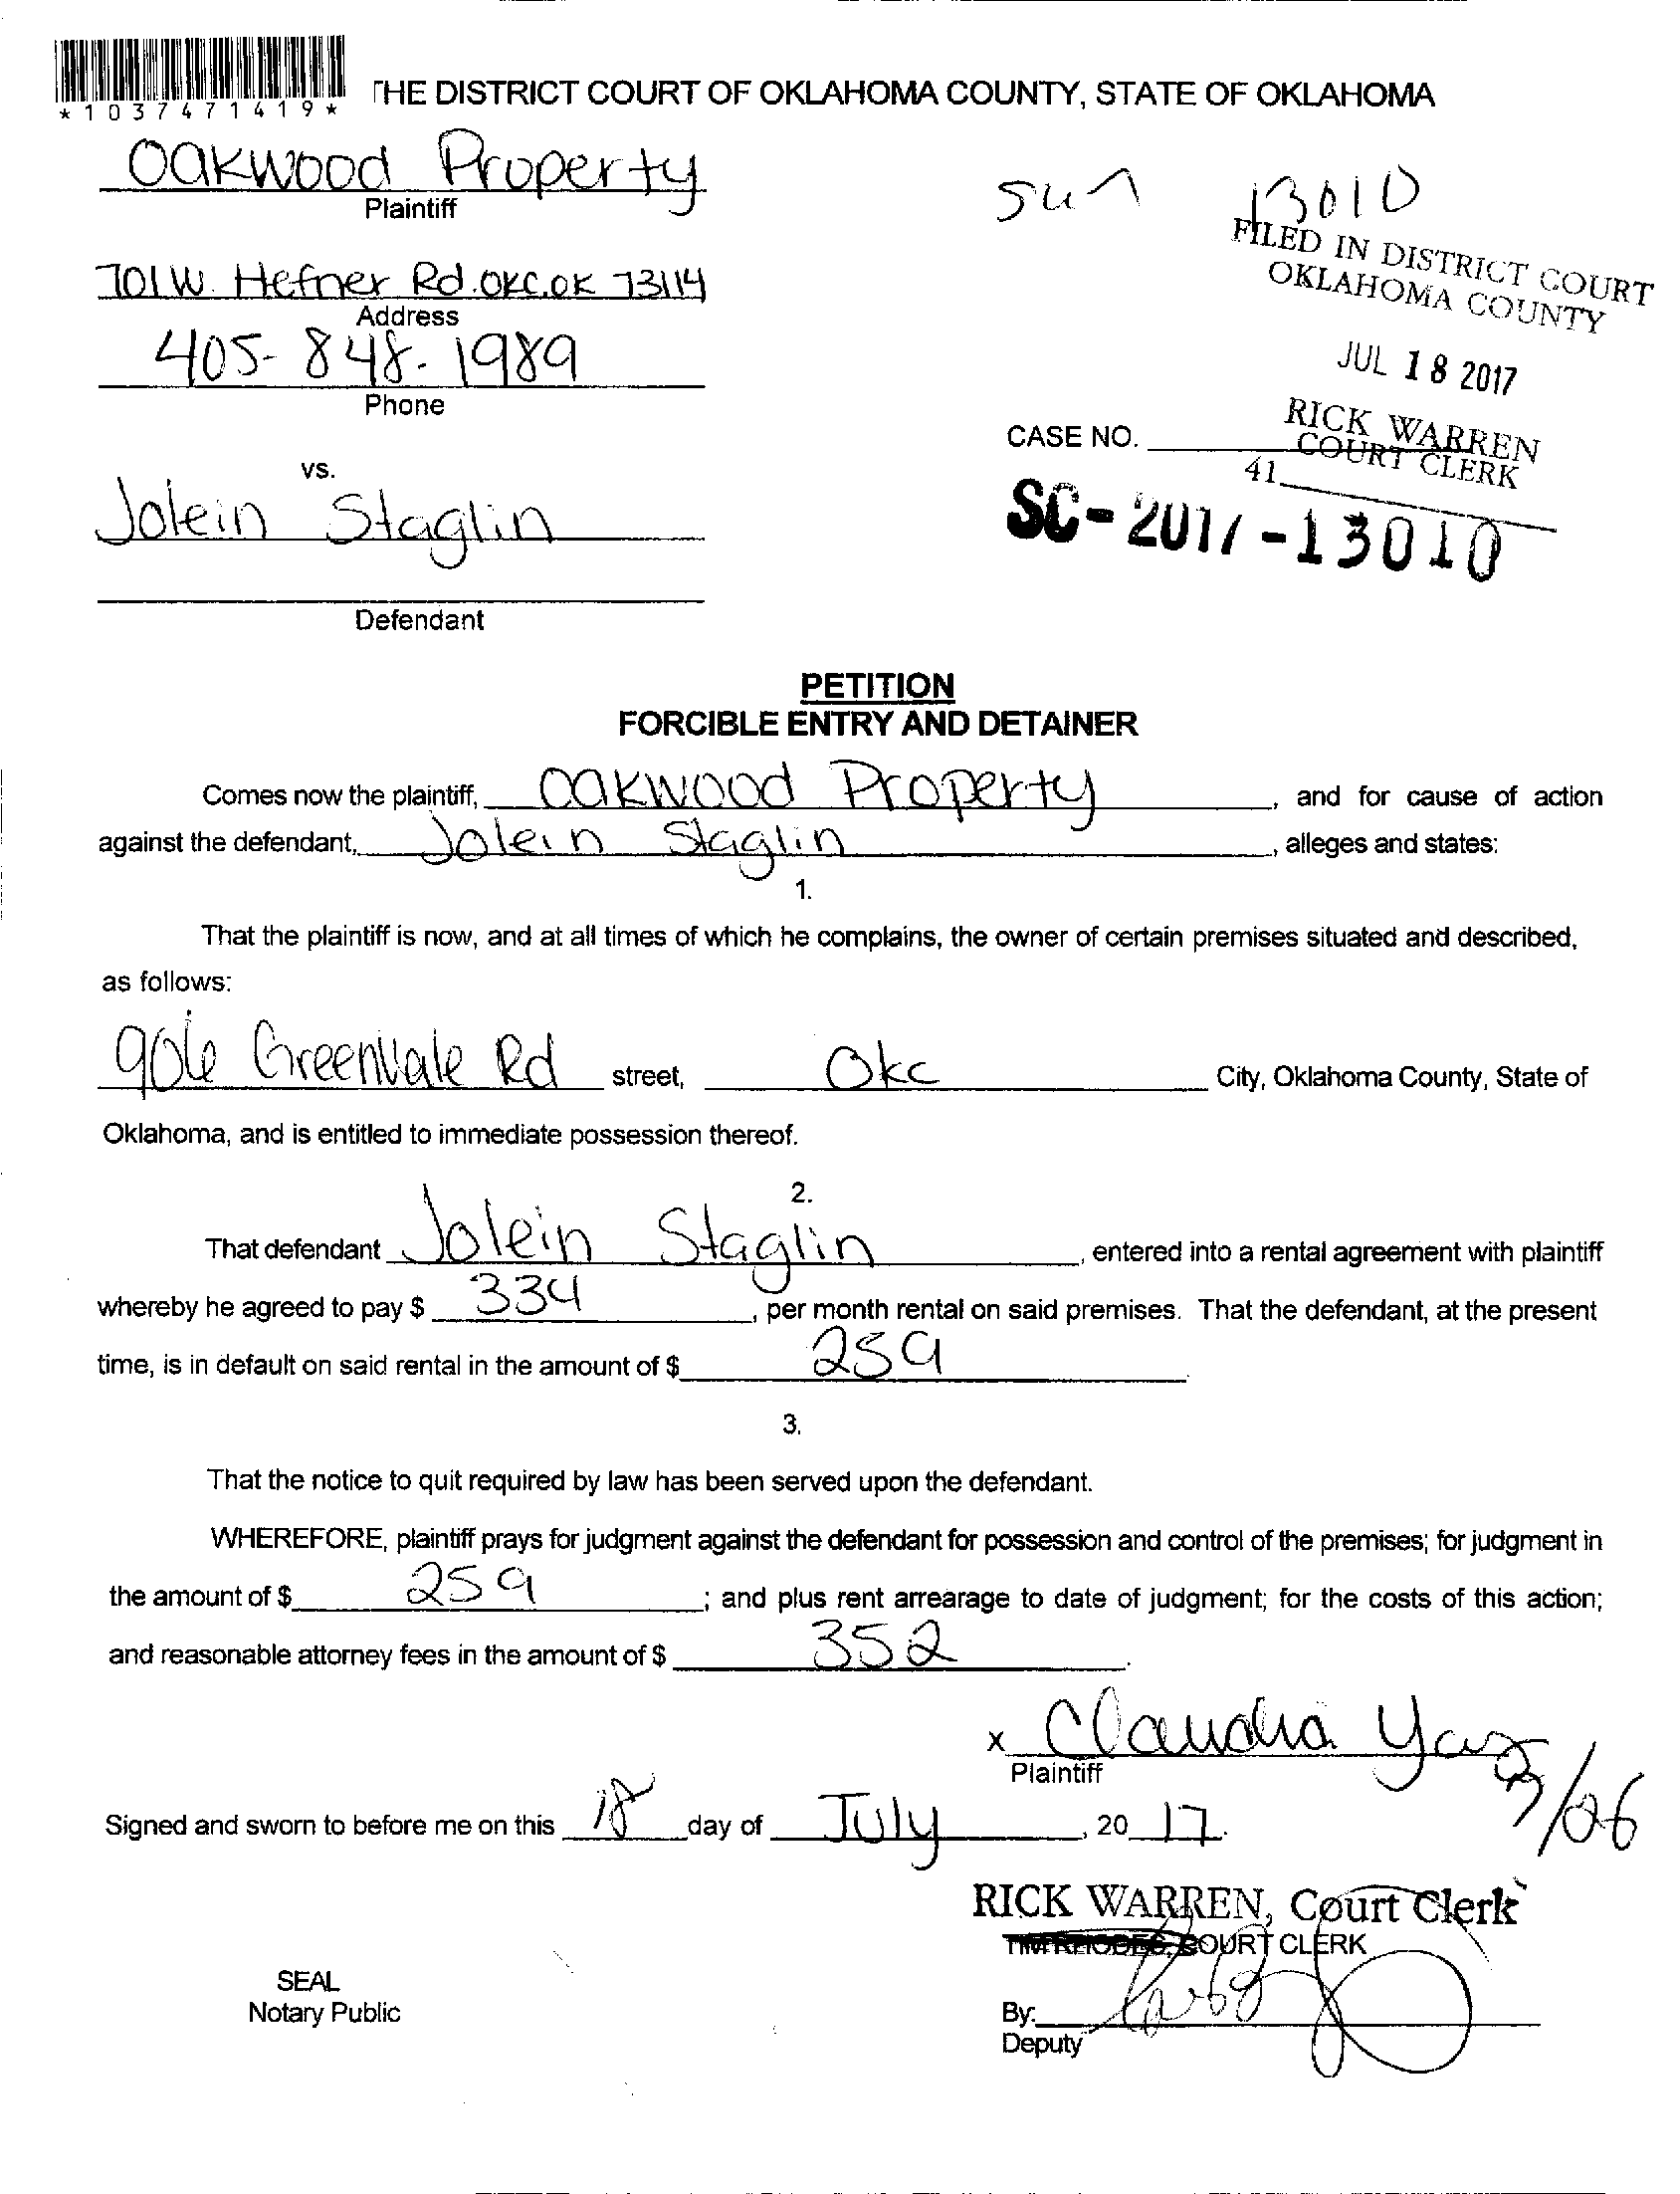 *1037471419*
THE DISTRICT COURT OF OKLAHOMA COUNTY, STATE OF OKLAHOMA
Oakwood Property
Plaintiff
13010
FILED IN DISTRICT COURT
OKLAHOMA COUNTY
701 W. Hefner Rd. OKC. OK 73114
Address
JUL 18 2017
405-848-1989
Phone
RICK WARREN
COURT CLERK
CASE NO.
41
vs.
Jolein Staglin
SC-2017-13010
Defendant
PETITION
FORCIBLE ENTRY AND DETAINER
Comes now the plaintiff, Oakwood Property, and for cause of action
against the defendant, Jolein Staglin, alleges and states:
1.
That the plaintiff is now, and at all times of which he complains, the owner of certain premises situated and described,
as follows:
Greenvale Rd street, Okc City, Oklahoma County, State of
Oklahoma, and is entitled to immediate possession thereof.
2.
That defendant Jolein Staglin, entered into a rental agreement with plaintiff
whereby he agreed to pay $ 334, per month rental on said premises. That the defendant, at the present
time, is in default on said rental in the amount of $ 259.
3.
That the notice to quit required by law has been served upon the defendant.
WHEREFORE, plaintiff prays for judgment against the defendant for possession and control of the premises; for judgment in
the amount of $ 259; and plus rent arrearage to date of judgment; for the costs of this action;
and reasonable attorney fees in the amount of $ 352.
x Claudia
Plaintiff
Signed and sworn to before me on this 18 day of July, 20 17.
RICK WARREN, Court Clerk
COURT CLERK
SEAL
Notary Public
By:
Deputy